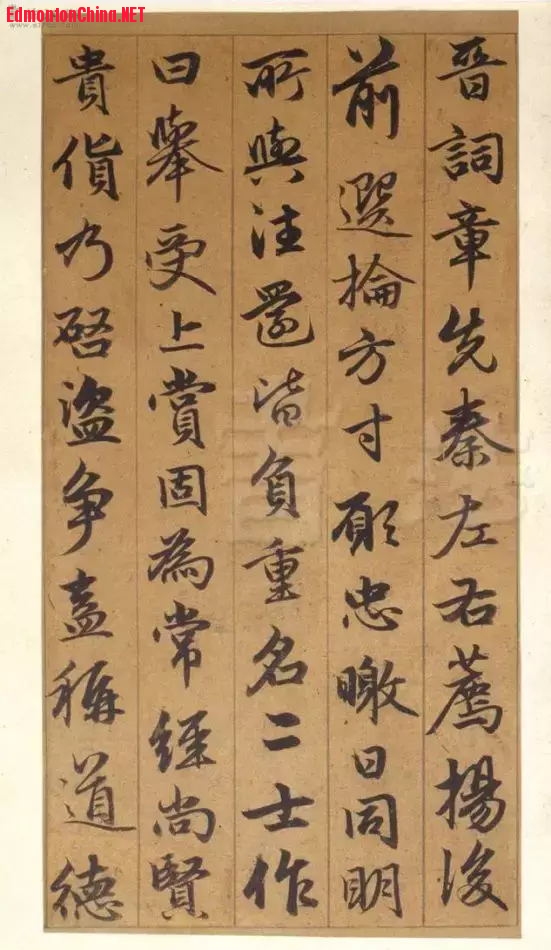 EdmontonChina.NET
晉詞章先秦左右薦揚後
前選掄方寸願忠暾日同明
所與注還皆負重名二士作
曰舉受上賞固為常經尚賢
貴貨乃啓盜爭盍稱道德